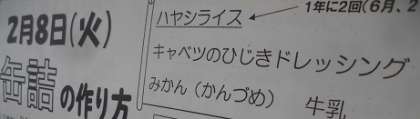 2月8日(火)
缶詰の作り方
ハヤシライス
1年に2回(6月、2
キャベツのひじきドレッシング
みかん(かんづめ)
牛乳